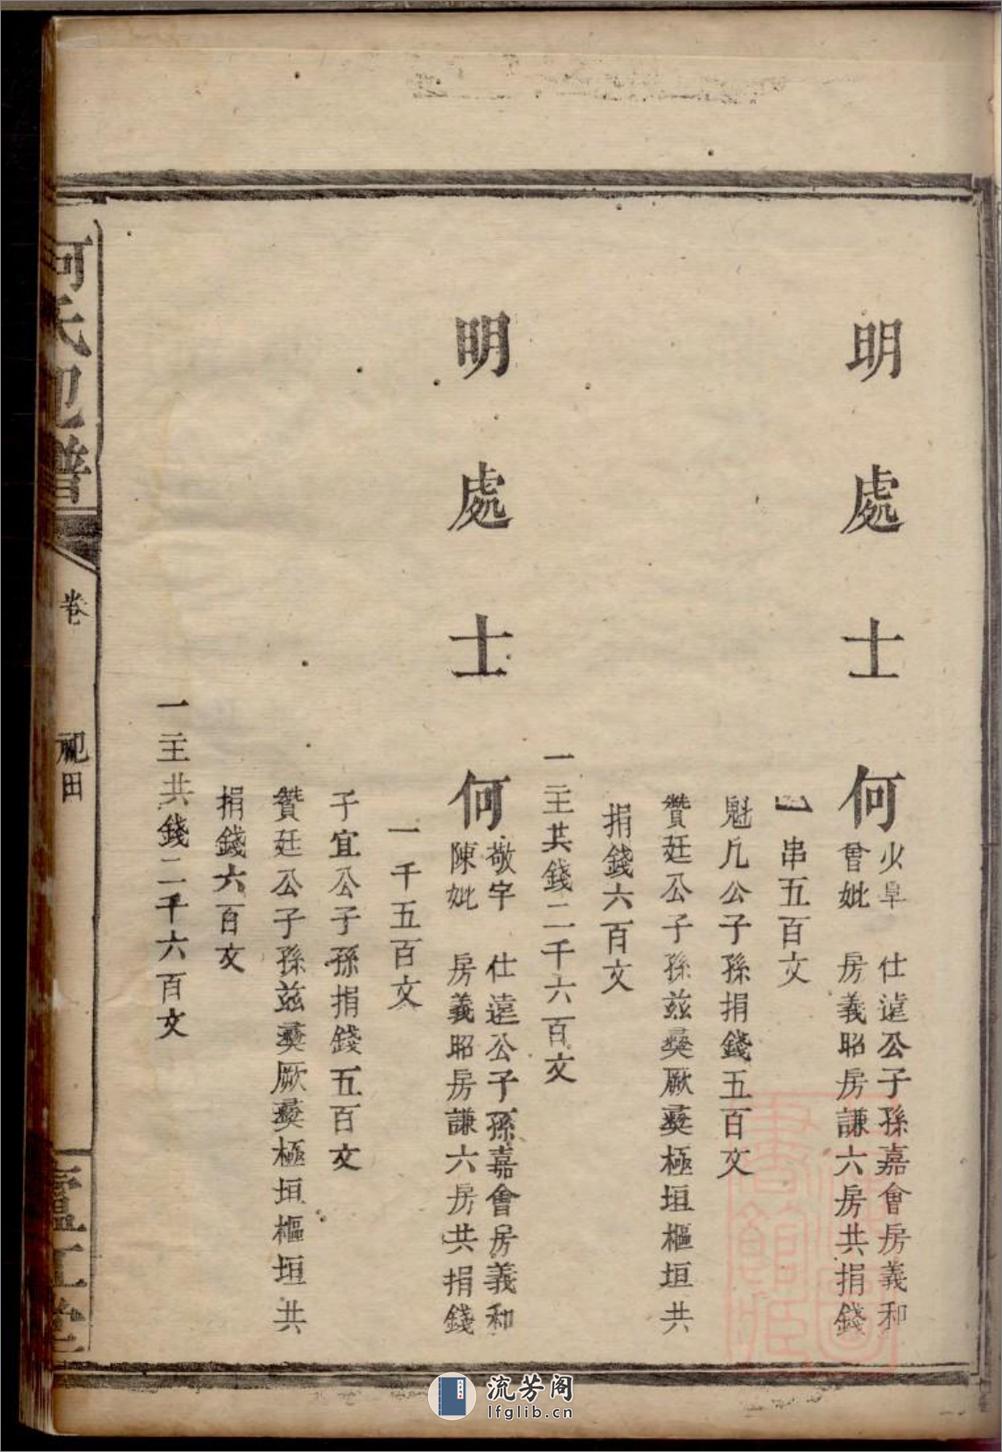 明處士何火阜 仕遠公子孫嘉會房義和
曾妣 房義昭房謙六房共捐錢
一串五百文
魁凡公子孫捐錢五百文
贊廷公子孫茲彝厥彝極垣樞垣共
捐錢六百文
一主共錢二千六百文
明處士何敬宇 仕遠公子孫嘉會房義和
陳妣 房義昭房謙六房共捐錢
一千五百文
子宜公子孫捐錢五百文
贊廷公子孫茲彝厥彝極垣樞垣共
捐錢六百文
一主共錢二千六百文
何氏祀譜
卷
祀田
廬江堂
流芳阁
lfglib.cn